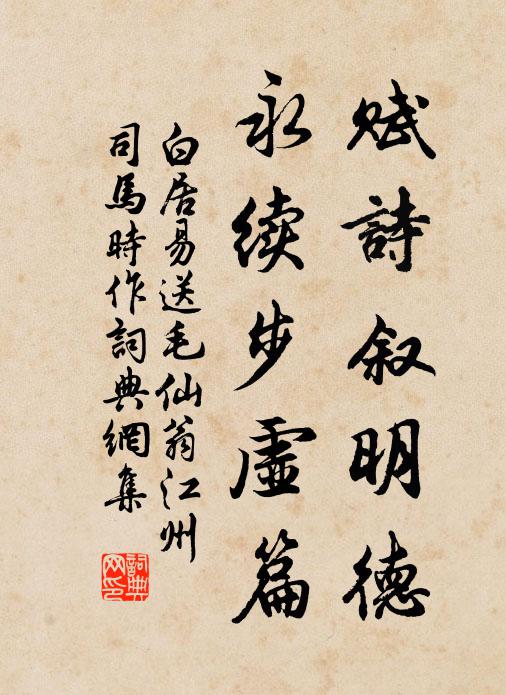 赋詩叙明德
永续步虚篇
白居易送毛仙翁江州
司馬時作詞典網集
詞典
网印